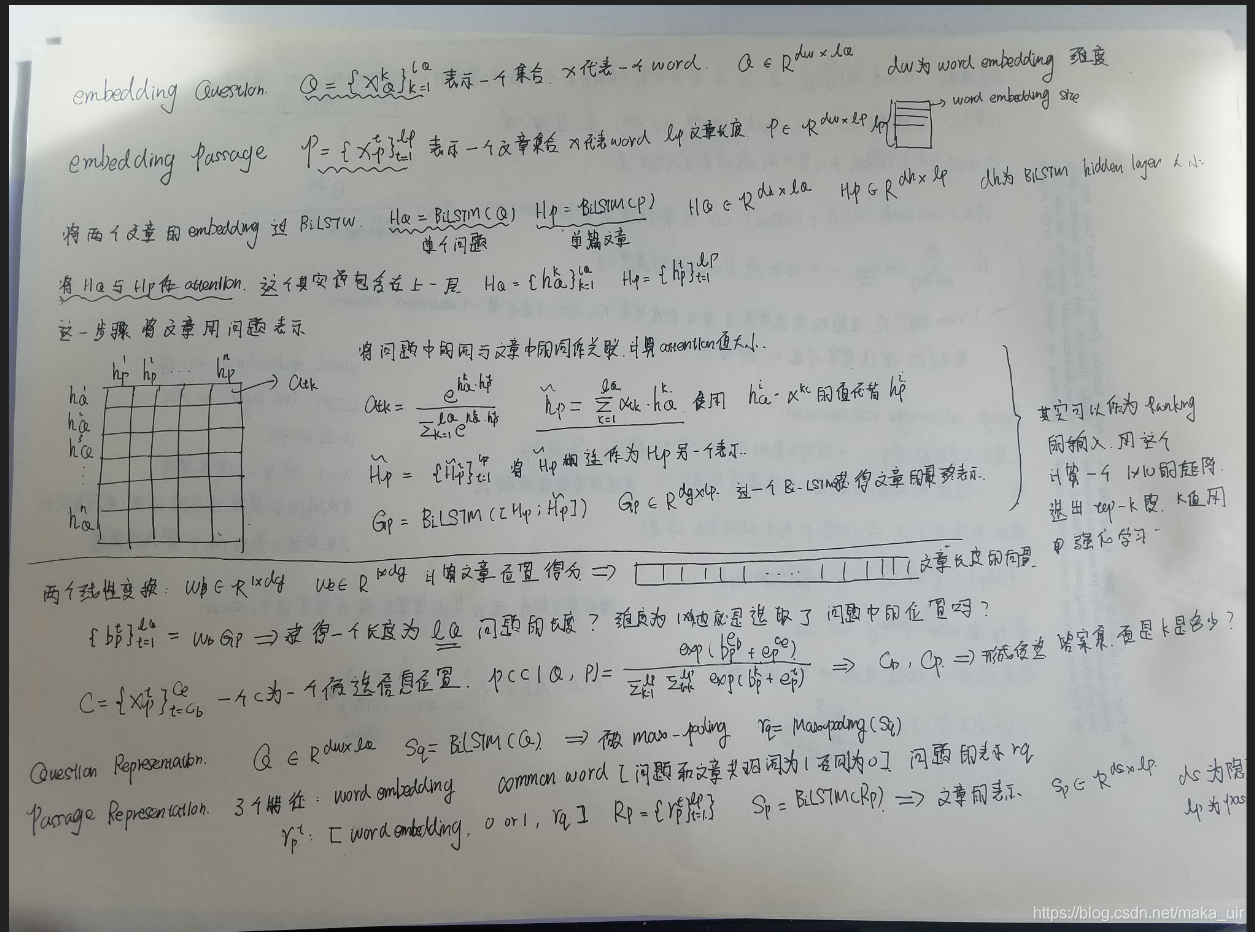 embedding Question. Q = {x_Q^k}_{k=1}^{lQ} 表示一个集合. x代表一个word. Q ∈ R^{dw×lQ} dw为word embedding 维度
→ word embedding size
embedding Passage P = {x_p^t}_{t=1}^{lp} 表示一个文章集合 x代表word lp文章长度 P ∈ R^{dw×lp} lp
将两个文章的embedding过BiLSTM. HQ = BiLSTM(Q) Hp = BiLSTM(P) HQ ∈ R^{dh×lQ} Hp ∈ R^{dh×lp} dh为BiLSTM hidden layer 大小.
单个问题 单篇文章
将HQ与Hp作attention. 这个其实包含在上一层 HQ = {h_Q^k}_{k=1}^{lQ} Hp = {h_p^t}_{t=1}^{lp}
这一步骤将文章用问题表示
将问题中的词与文章中的词作关联.计算attention值大小.
hp^1 hp^2 hp^n → αtk
αtk = e^{h_Q^k·h_p^t} / Σ_{k=1}^{lQ} e^{h_Q^k·h_p^t} h̃p = Σ_{k=1}^{lQ} αtk·h_Q^k 使用 的值代替
H̃p = {H̃p^t}_{t=1}^{lp} 将H̃p 作为Hp另一个表示.
Gp = BiLSTM([Hp; H̃p]) Gp ∈ R^{dg×lp} 过一个Bi-LSTM获得文章的最终表示.
其实可以作为ranking
的输入.用这个
计算一个1×10的矩阵.
选出top-k段. k值用
强化学习
两个线性变换: wb ∈ R^{1×dg} we ∈ R^{1×dg} 计算文章位置得分 ⇒ 文章长度的向量.
{b_p^t}_{t=1}^{lQ} = wb Gp ⇒ 获得一个长度为lQ 问题的长度? 维度为 也就是选取了问题中的位置吗?
C = {x_p^t}_{t=Cb}^{Ce} 一个C为一个候选信息位置. p(C|Q, P) = exp(b_p^{Cb} + e_p^{Ce}) / Σ_{k=1}^{lp} Σ_{t=k}^{lp} exp(b_p^k + e_p^t) ⇒ Cb, Cp ⇒ 形成候选答案集.但是k是多少?
Question Representation. Q ∈ R^{dw×lQ} Sq = BiLSTM(Q) ⇒ 做max-pooling rq = Maxpooling(Sq)
Passage Representation. 3个特征: word embedding common word [问题和文章共现词为1否则为0] 问题的表示rq
r_p^t: [word embedding, 0 or 1, rq] Rp = {r_p^t}_{t=1}^{lp} Sp = BiLSTM(Rp) ⇒ 文章的表示 Sp ∈ R^{ds×lp} ds为隐
lp为pas
https://blog.csdn.net/maka_uir